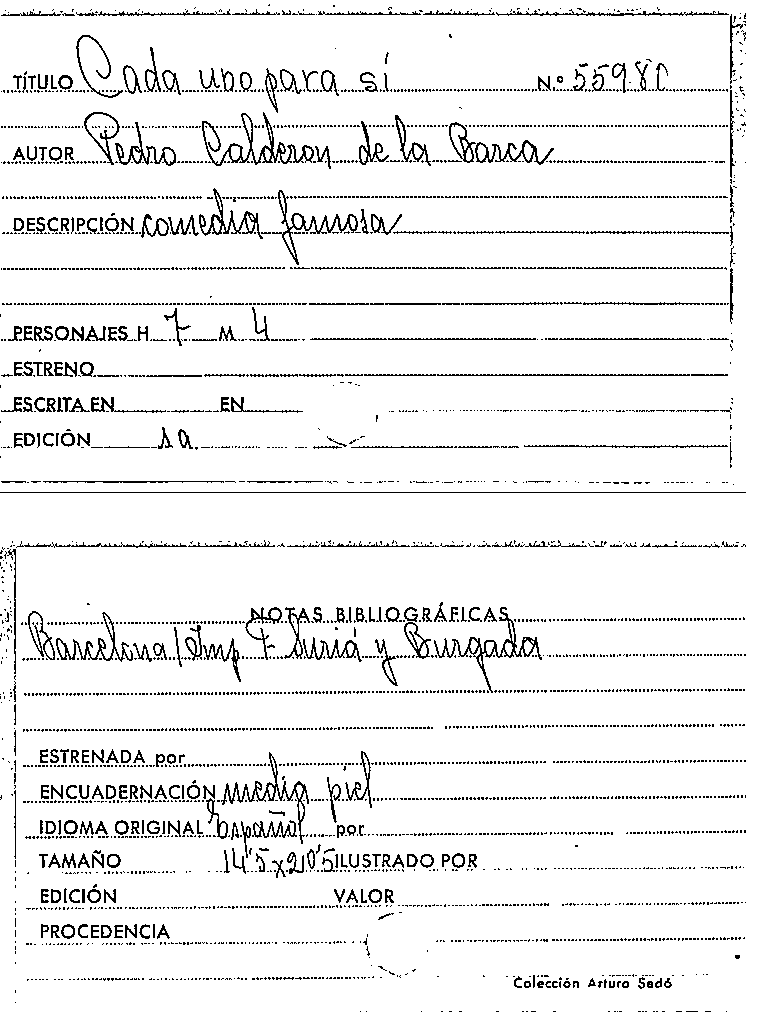 TÍTULO Cada uno para sí N.º 55980
AUTOR Pedro Calderon de la Barca
DESCRIPCIÓN comedia famosa
PERSONAJES H 7 M 4
ESTRENO
ESCRITA EN EN
EDICIÓN sa
NOTAS BIBLIOGRÁFICAS
Barcelona / Imp F Suriá y Burgada
ESTRENADA por
ENCUADERNACIÓN media piel
IDIOMA ORIGINAL Español por
TAMAÑO 14'5x20'5 ILUSTRADO POR
EDICIÓN VALOR
PROCEDENCIA
Colección Arturo Sedó